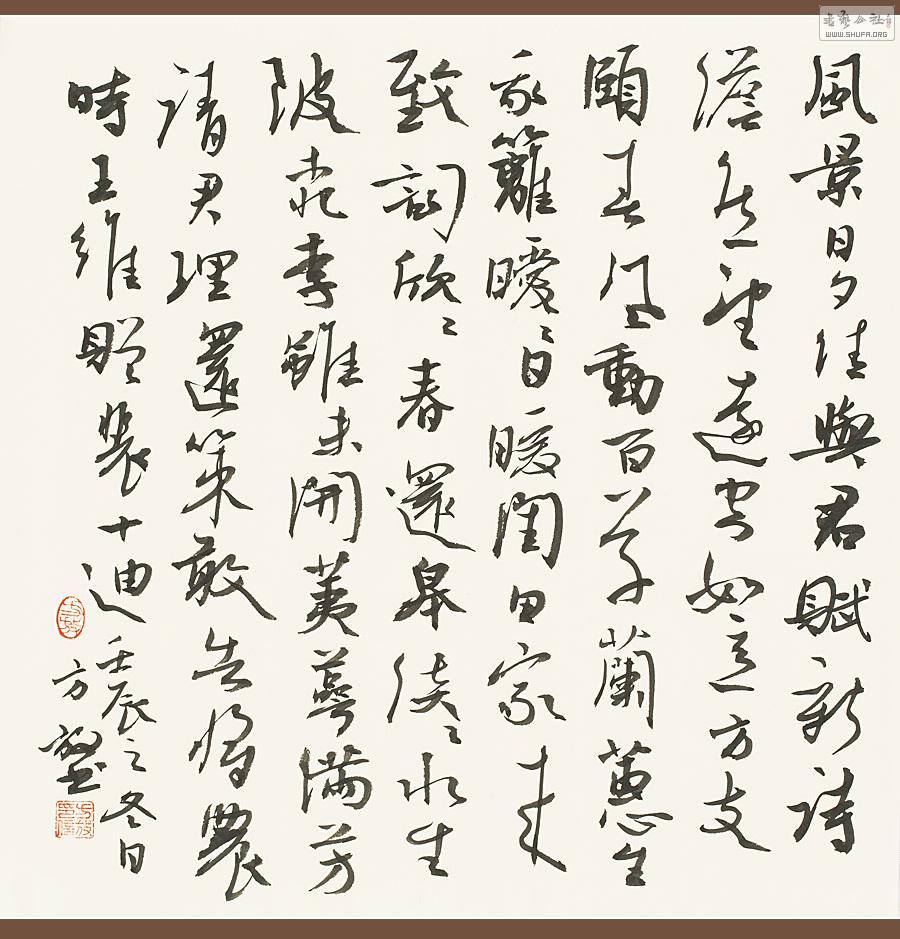 風景日夕佳與君賦新詩
澹然望遠空如意方支
頤春風動百草蘭蕙生
我籬曖〻日暖閨田家來
致詞欣〻春還皋淡〻水生
陂桃李雖未開荑萼滿芳
請君理還策敢告將農
時王維贈裴十迪
壬辰之冬日
方
書藝公社
WWW.SHUFA.ORG